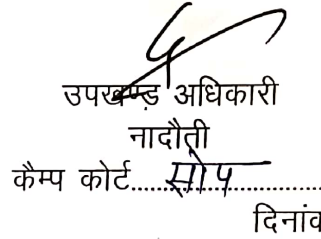 उपखण्ड अधिकारी
नादौती
कैम्प कोर्ट....सोप....
दिनांक